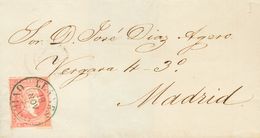 Sor. D. José Diaz Agero
Vergara 4-3º
Madrid